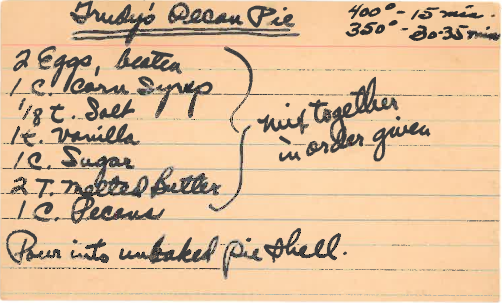 Trudy's Pecan Pie
400° - 15 min.
350° - 30-35 min
2 Eggs, beaten
1 C. Corn Syrup
1/8 t. Salt
1 t. Vanilla
1 C. Sugar
2 T. Melted Butter
1 C. Pecans
mix together
in order given
Pour into unbaked pie shell.